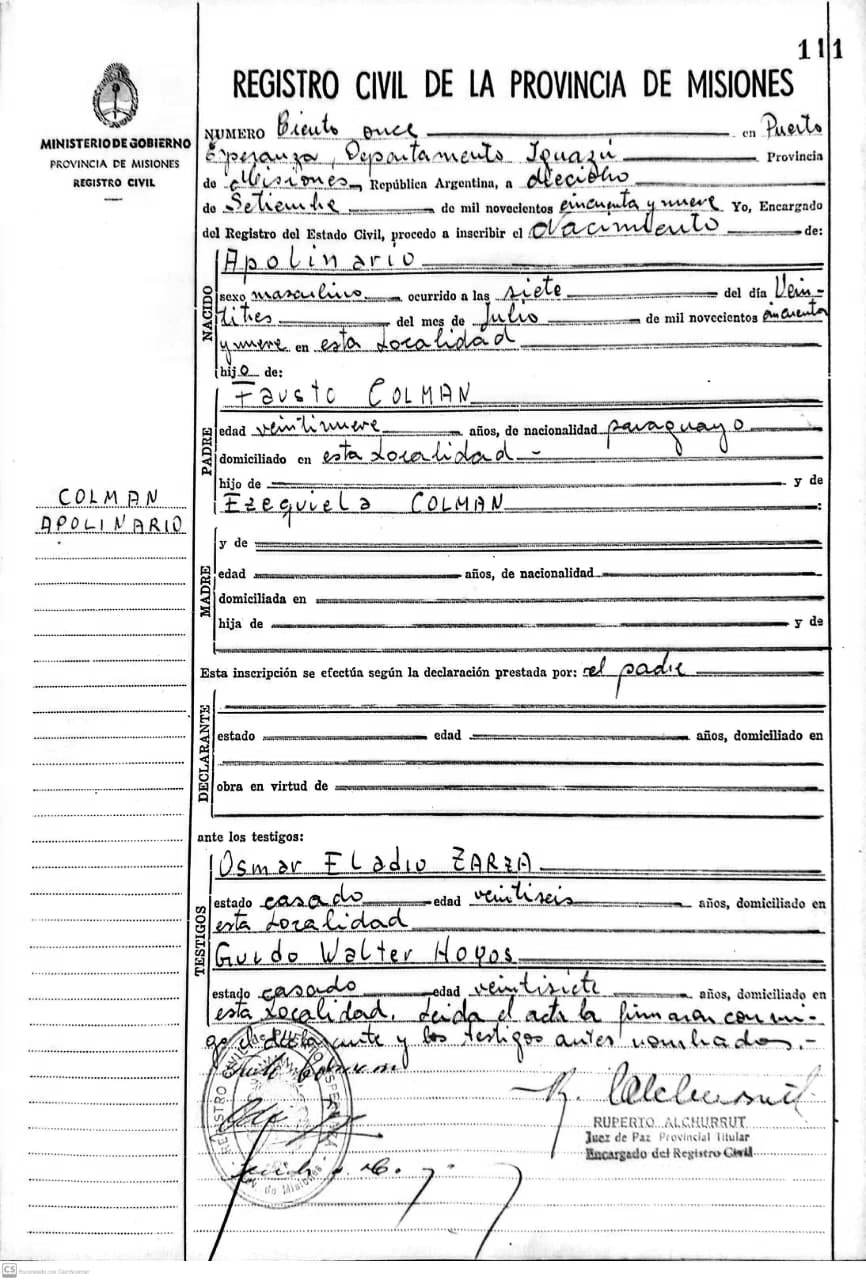 111
REGISTRO CIVIL DE LA PROVINCIA DE MISIONES
MINISTERIO DE GOBIERNO
PROVINCIA DE MISIONES
REGISTRO CIVIL
NUMERO Ciento once en Puerto
Esperanza, Departamento Iguazú Provincia
de Misiones, República Argentina, a dieciocho
de Setiembre de mil novecientos cincuenta y nueve Yo, Encargado
del Registro del Estado Civil, procedo a inscribir el Nacimiento de:
NACIDO
Apolinario
sexo masculino ocurrido a las siete del día Vein-
titres del mes de Julio de mil novecientos cincuenta
y nueve en esta Localidad
hijo de:
PADRE
Fausto COLMAN
edad veintinueve años, de nacionalidad paraguayo
domiciliado en esta Localidad -
hijo de y de
Ezequiela COLMAN :
COLMAN
APOLINARIO
MADRE
y de
edad años, de nacionalidad
domiciliada en
hija de y de
Esta inscripción se efectúa según la declaración prestada por: el padre
DECLARANTE
estado edad años, domiciliado en
obra en virtud de
ante los testigos:
TESTIGOS
Osmar Eladio ZARZA
estado casado edad veintiseis años, domiciliado en
esta Localidad
Guido Walter Hoyos
estado casado edad veintisiete años, domiciliado en
esta Localidad. Leida el acta la firmaran conmi-
go el declarante y los testigos antes nombrados.-
REGISTRO CIVIL
de Misiones
R. Alchurrut
RUPERTO ALCHURRUT
Juez de Paz Provincial Titular
Encargado del Registro Civil
CS